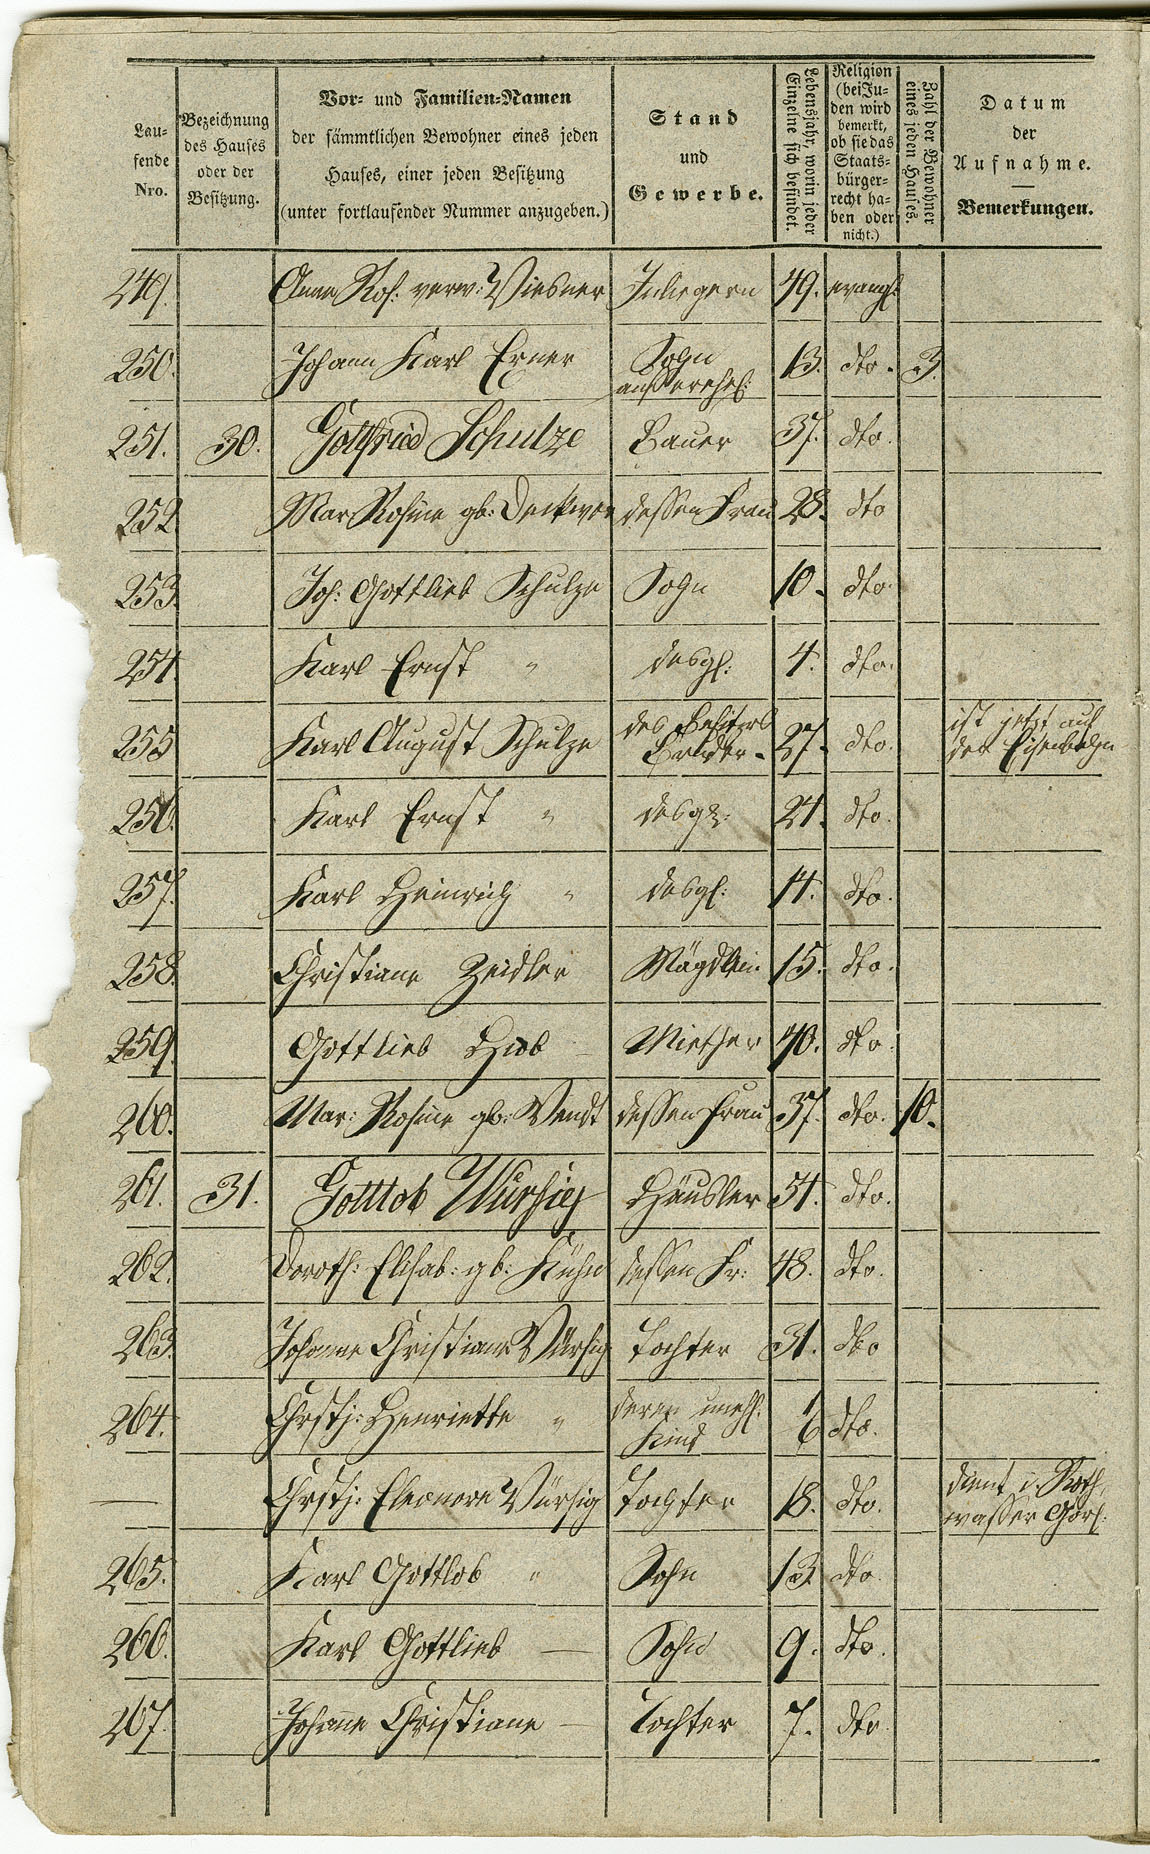 Lau-
fende
Nro.
Bezeichnung
des Hauses
oder der
Besitzung.
Vor- und Familien-Namen
der sämmtlichen Bewohner eines jeden
Hauses, einer jeden Besitzung
(unter fortlaufender Nummer anzugeben.)
Stand
und
Gewerbe.
Lebensjahr, worin jeder
Einzelne sich befindet.
Religion
(bei Ju-
den wird
bemerkt,
ob sie das
Staats-
bürger-
recht ha-
ben oder
nicht.)
Zahl der Bewohner
eines jeden Hauses.
Datum
der
Aufnahme.
Bemerkungen.
249. Anna Ros: verw: 49. evangl:
250. Johann Karl Exner Sohn 13. dto. 3.
außerehel:
251. 30. Gottfried Schulze Bauer 37. dto.
252 Mar Rosine gb: dessen Frau 28. dto
253. Joh: Gottlieb Schulze Sohn 10. dto.
254 Karl Ernst " desgl: 4. dto.
255 Karl August Schulze des Besitzers Bruder 27. dto. ist jetzt auf
der Eisenbahn
256. Karl Ernst " desgl: 24. dto.
257. Karl Heinrich " desgl: 14. dto.
258. Christiane Zeidler Mägdlein 15. dto.
259. Gottlieb Hiob Miether 40. dto.
260. Mar: Rosine gb: Wendt dessen Frau 37. dto. 10.
261. 31. Gottlob Würsig Häusler 54. dto.
262. Doroth: Elisab: gb: Kühn dessen Fr: 48. dto.
263. Johanne Christiane Würsig Tochter 31. dto
264. Chrstj: Henriette " deren unehl: 1/6 dto.
Kind
— Chrstj: Eleonore Würsig Tochter 18. dto. dient i. Roth-
wasser Görl:
265. Karl Gottlob " Sohn 13 dto.
266. Karl Gottlieb — Sohn 9. dto.
267. Johanne Christiane — Tochter 7. dto